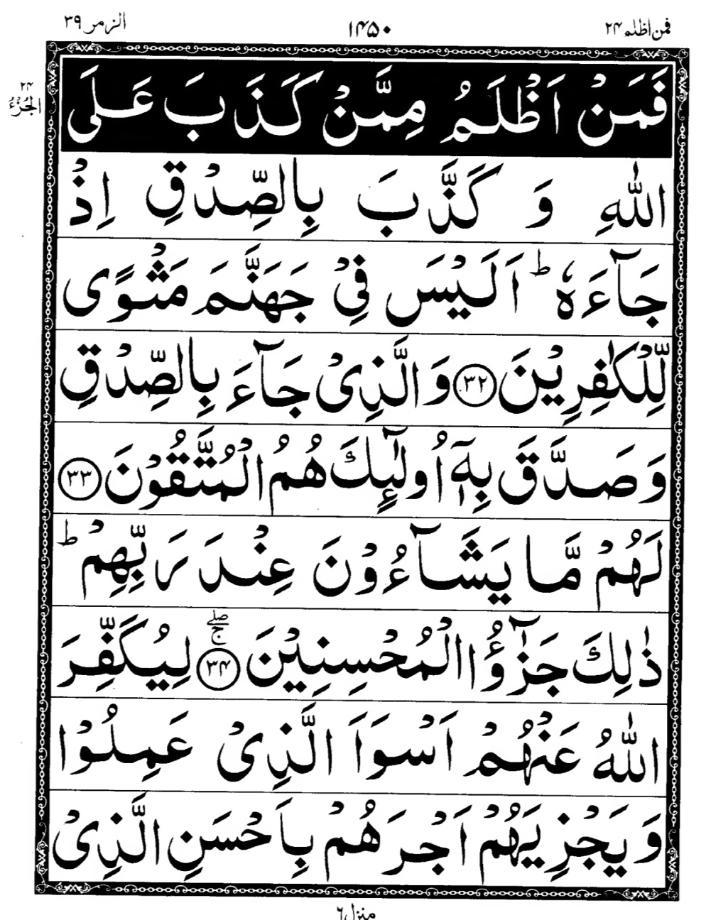 فمن اظلم ۲۴
۱۴۵۰
الزمر ۳۹
۲۴
الجزء
فَمَنْ اَظْلَمُ مِمَّنْ كَذَبَ عَلَى
اللّٰهِ وَ كَذَّبَ بِالصِّدْقِ اِذْ
جَآءَهٗ ؕ اَلَيْسَ فِیْ جَهَنَّمَ مَثْوًی
لِّلْكٰفِرِيْنَ ۳۲ وَالَّذِیْ جَآءَ بِالصِّدْقِ
وَصَدَّقَ بِهٖۤ اُولٰٓئِكَ هُمُ الْمُتَّقُوْنَ ۳۳
لَهُمْ مَّا يَشَآءُوْنَ عِنْدَ رَبِّهِمْ ؕ
ذٰلِكَ جَزٰٓؤُا الْمُحْسِنِيْنَ ۳۴ ۚۖ لِيُكَفِّرَ
اللّٰهُ عَنْهُمْ اَسْوَاَ الَّذِیْ عَمِلُوْا
وَيَجْزِيَهُمْ اَجْرَهُمْ بِاَحْسَنِ الَّذِیْ
منزل ۶